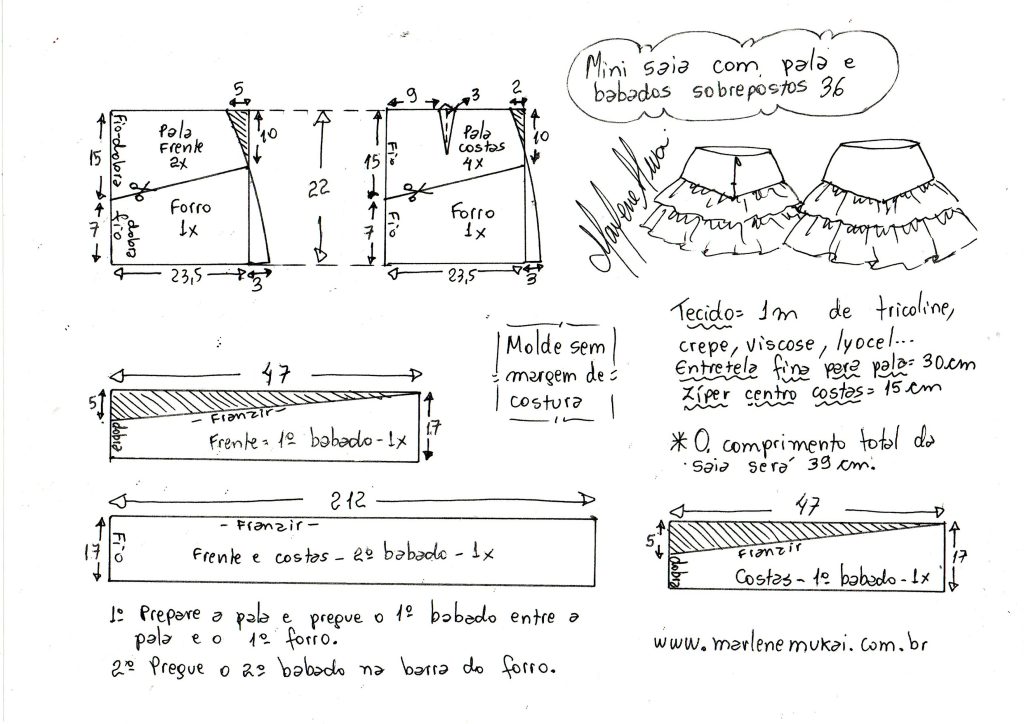 Mini saia com pala e
babados sobrepostos 36
Marlene Mukai
5
Fio-dobra
Pala
Frente
2x
10
15
Forro
1x
fio
dobra
7
23,5
3
22
9
3
2
Fio
Pala
costas
4x
10
15
Forro
1x
Fio
7
23,5
3
Molde sem
margem de
costura
Tecido= 1m de tricoline,
crepe, viscose, lyocel...
Entretela fina para pala= 30cm
Zíper centro costas= 15cm
* O comprimento total da
saia será 39 cm.
47
5
Franzir
dobra
Frente= 1º babado-1x
17
212
- Franzir -
17
Fio
Frente e costas - 2º babado - 1x
47
5
Franzir
dobra
Costas-1º babado-1x
17
1º Prepare a pala e pregue o 1º babado entre a
pala e o 1º forro.
2º Pregue o 2º babado na barra do forro.
www.marlenemukai.com.br